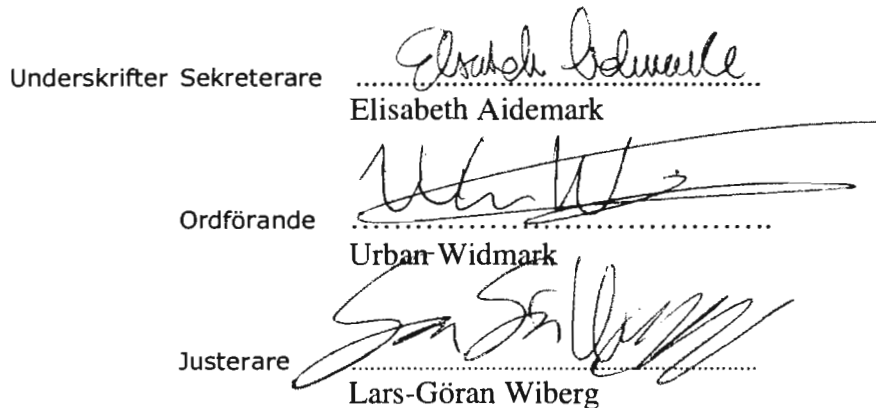 Underskrifter Sekreterare
Elisabeth Aidemark
Ordförande
Urban Widmark
Justerare
Lars-Göran Wiberg